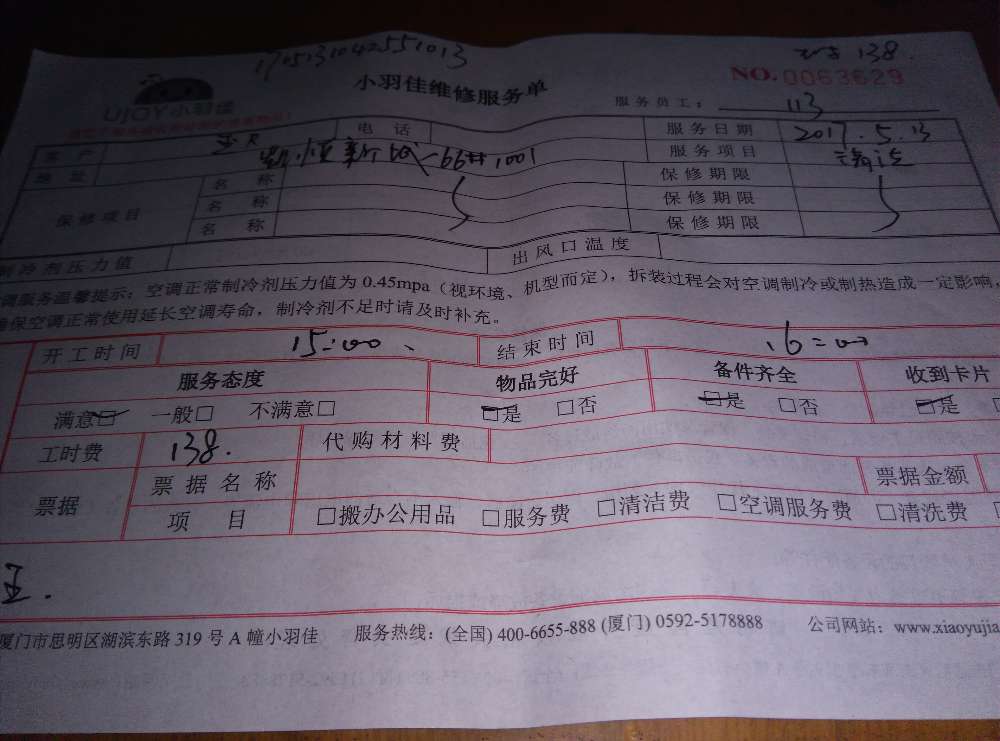 1705131042551013
138.
小羽佳维修服务单
NO.0063629
UJOY小羽佳
服务员工： 113
客户 电话 服务日期 2017.5.13
地址 新城 66# 1001 服务项目 清洁
保修项目 名称 保修期限
名称 保修期限
名称 保修期限
制冷剂压力值 出风口温度
调服务温馨提示：空调正常制冷剂压力值为 0.45mpa（视环境、机型而定），拆装过程会对空调制冷或制热造成一定影响，
确保空调正常使用延长空调寿命，制冷剂不足时请及时补充。
开工时间 15:00 结束时间 16:00
服务态度 物品完好 备件齐全 收到卡片
满意☑ 一般□ 不满意□ ☑是 □否 ☑是 □否 ☑是
工时费 138. 代购材料费
票据 票据名称 票据金额
项目 □搬办公用品 □服务费 □清洁费 □空调服务费 □清洗费
王.
厦门市思明区湖滨东路 319 号 A 幢小羽佳 服务热线：(全国) 400-6655-888 (厦门) 0592-5178888 公司网站：www.xiaoyujia